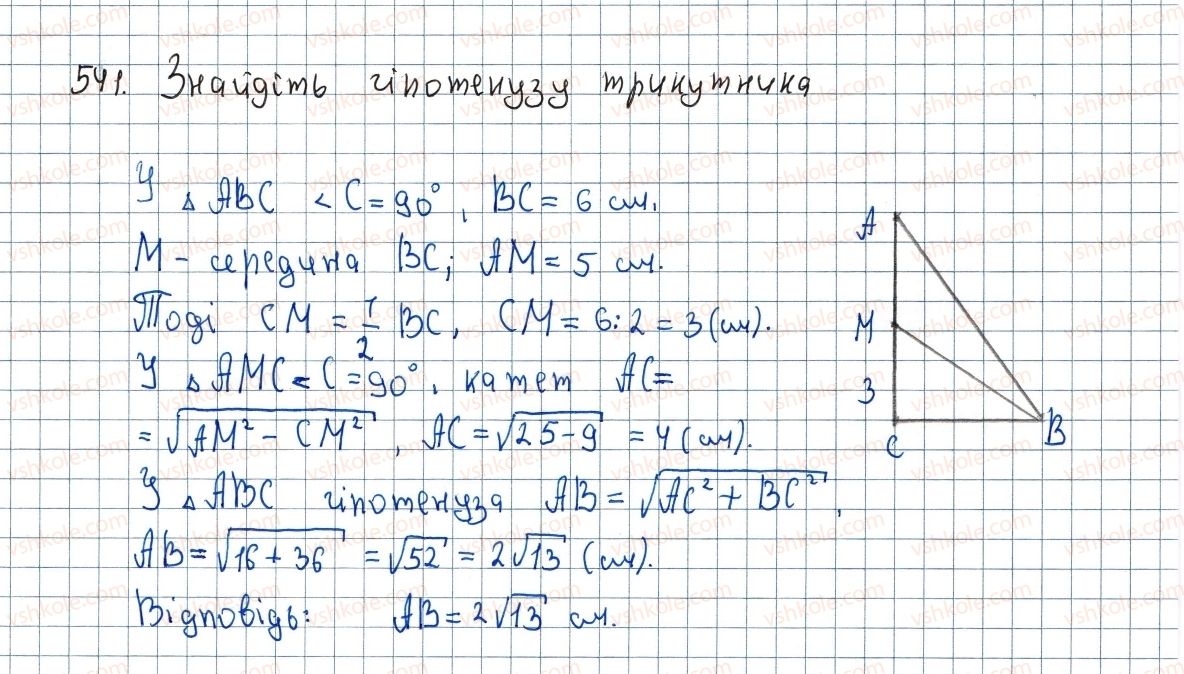 541. Знайдіть гіпотенузу трикутника
У △ ABC < C = 90°, BC = 6 см.
M - середина BC; AM = 5 см.
Тоді CM = 1/2 BC, CM = 6 : 2 = 3 (см).
У △ AMC < C = 90°, катет AC =
= √(AM² - CM²), AC = √(25 - 9) = 4 (см).
У △ ABC гіпотенуза AB = √(AC² + BC²),
AB = √(16 + 36) = √52 = 2√13 (см).
Відповідь: AB = 2√13 см.
A
M
3
C
B
vshkole.com